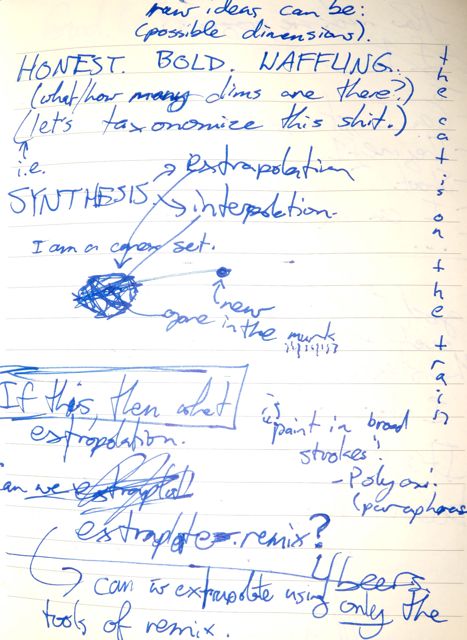 new ideas can be:
(possible dimensions).
HONEST. BOLD. WAFFLING.
(what/how many dims are there?)
(let's taxonomize this shit.)
i.e.
SYNTHESIS
extrapolation
interpolation.
I am a set.
new
gone in the murk
the cat is on the train
If this, then what
extropolation.
"paint in broad
strokes".
- Poly
(paraphrase
can we
extrapolate. remix?
4 beers.
can we extrapolate using only the
tools of remix.